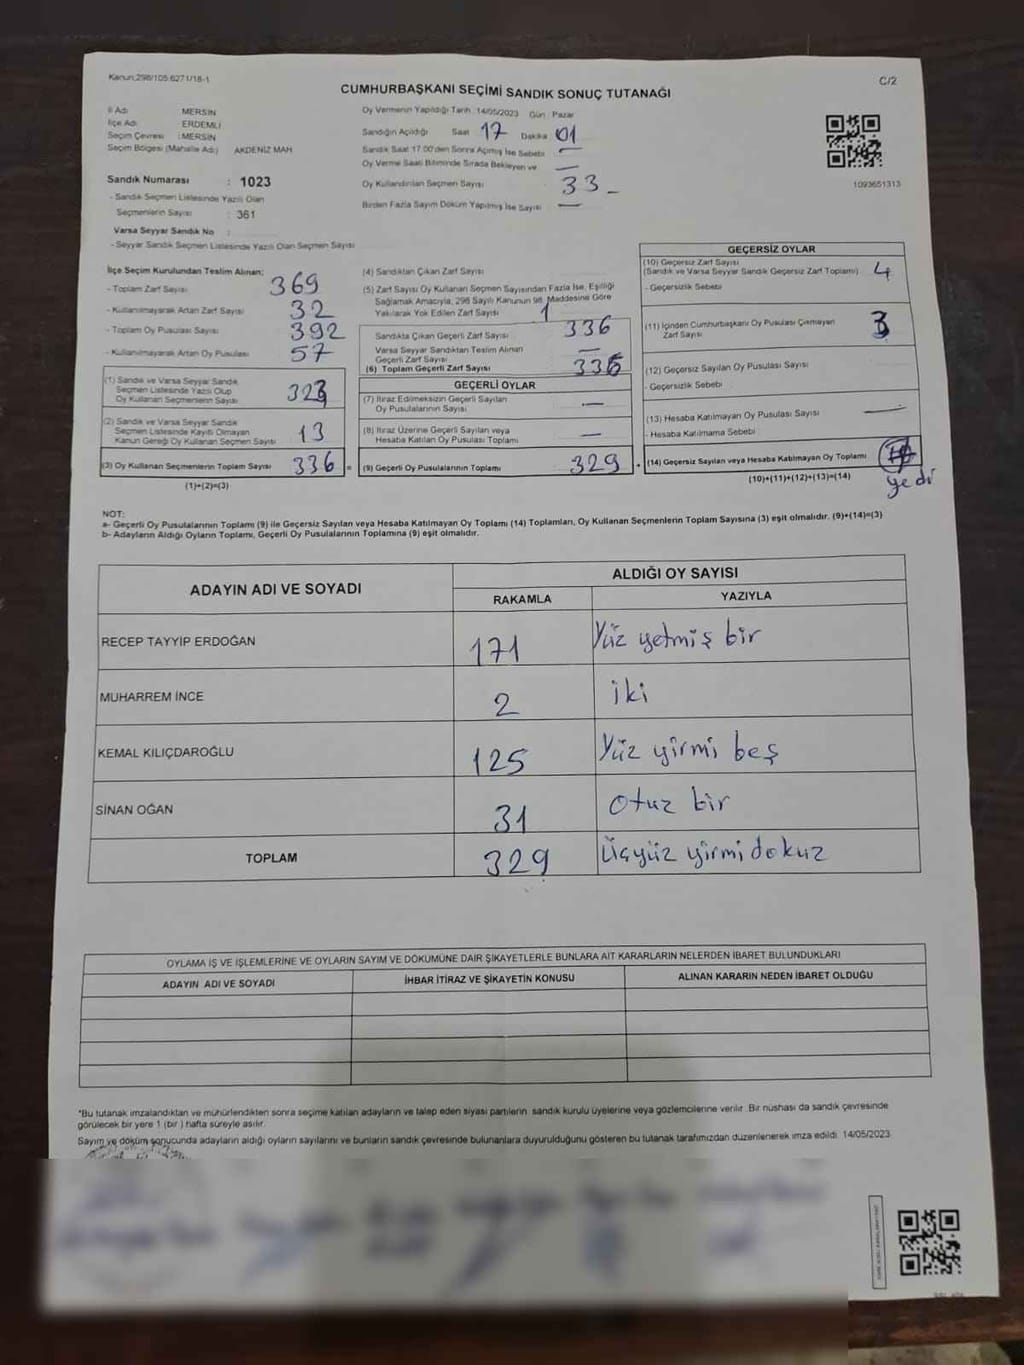 Kanun:298/105 6271/18-1
C/2
CUMHURBAŞKANI SEÇİMİ SANDIK SONUÇ TUTANAĞI
İl Adı MERSİN
İlçe Adı ERDEMLİ
Seçim Çevresi : MERSİN
Seçim Bölgesi (Mahalle Adı) AKDENİZ MAH
Sandık Numarası : 1023
- Sandık Seçmen Listesinde Yazılı Olan
Seçmenlerin Sayısı : 361
Varsa Seyyar Sandık No :
- Seyyar Sandık Seçmen Listesinde Yazılı Olan Seçmen Sayısı
Oy Vermenin Yapıldığı Tarih : 14/05/2023 Gün : Pazar
Sandığın Açıldığı Saat 17 Dakika 01
Sandık Saat 17:00'den Sonra Açılmış İse Sebebi —
Oy Verme Saati Bitiminde Sırada Bekleyen ve —
Oy Kullandırılan Seçmen Sayısı 33 -
Birden Fazla Sayım Döküm Yapılmış İse Sayısı —
1093651313
İlçe Seçim Kurulundan Teslim Alınan;
- Toplam Zarf Sayısı 369
- Kullanılmayarak Artan Zarf Sayısı 32
- Toplam Oy Pusulası Sayısı 392
- Kullanılmayarak Artan Oy Pusulası 57
(1) Sandık ve Varsa Seyyar Sandık
Seçmen Listesinde Yazılı Olup
Oy Kullanan Seçmenlerin Sayısı 323
(2) Sandık ve Varsa Seyyar Sandık
Seçmen Listesinde Kayıtlı Olmayan
Kanun Gereği Oy Kullanan Seçmen Sayısı 13
(3) Oy Kullanan Seçmenlerin Toplam Sayısı 336 =
(1)+(2)=(3)
(4) Sandıktan Çıkan Zarf Sayısı
(5) Zarf Sayısı Oy Kullanan Seçmen Sayısından Fazla İse, Eşitliği
Sağlamak Amacıyla, 298 Sayılı Kanunun 98. Maddesine Göre
Yakılarak Yok Edilen Zarf Sayısı 1
Sandıkta Çıkan Geçerli Zarf Sayısı 336
Varsa Seyyar Sandıktan Teslim Alınan
Geçerli Zarf Sayısı —
(6) Toplam Geçerli Zarf Sayısı 336
GEÇERLİ OYLAR
(7) İtiraz Edilmeksizin Geçerli Sayılan
Oy Pusulalarının Sayısı —
(8) İtiraz Üzerine Geçerli Sayılan veya
Hesaba Katılan Oy Pusulası Toplamı —
(9) Geçerli Oy Pusulalarının Toplamı 329 +
GEÇERSİZ OYLAR
(10) Geçersiz Zarf Sayısı
(Sandık ve Varsa Seyyar Sandık Geçersiz Zarf Toplamı) 4
- Geçersizlik Sebebi
(11) İçinden Cumhurbaşkanı Oy Pusulası Çıkmayan
Zarf Sayısı 3
(12) Geçersiz Sayılan Oy Pusulası Sayısı
- Geçersizlik Sebebi
(13) Hesaba Katılmayan Oy Pusulası Sayısı —
- Hesaba Katılmama Sebebi
(14) Geçersiz Sayılan veya Hesaba Katılmayan Oy Toplamı
yedi
(10)+(11)+(12)+(13)=(14)
NOT:
a- Geçerli Oy Pusulalarının Toplamı (9) ile Geçersiz Sayılan veya Hesaba Katılmayan Oy Toplamı (14) Toplamları, Oy Kullanan Seçmenlerin Toplam Sayısına (3) eşit olmalıdır. (9)+(14)=(3)
b- Adayların Aldığı Oyların Toplamı, Geçerli Oy Pusulalarının Toplamına (9) eşit olmalıdır.
ADAYIN ADI VE SOYADI
ALDIĞI OY SAYISI
RAKAMLA YAZIYLA
RECEP TAYYİP ERDOĞAN 171 Yüz yetmiş bir
MUHARREM İNCE 2 iki
KEMAL KILIÇDAROĞLU 125 Yüz yirmi beş
SİNAN OĞAN 31 otuz bir
TOPLAM 329 Üçyüz yirmi dokuz
OYLAMA İŞ VE İŞLEMLERİNE VE OYLARIN SAYIM VE DÖKÜMÜNE DAİR ŞİKAYETLERLE BUNLARA AİT KARARLARIN NELERDEN İBARET BULUNDUKLARI
ADAYIN ADI VE SOYADI İHBAR İTİRAZ VE ŞİKAYETİN KONUSU ALINAN KARARIN NEDEN İBARET OLDUĞU
*Bu tutanak imzalandıktan ve mühürlendikten sonra seçime katılan adayların ve talep eden siyasi partilerin sandık kurulu üyelerine veya gözlemcilerine verilir. Bir nüshası da sandık çevresinde
görülecek bir yere 1 (bir) hafta süreyle asılır.
Sayım ve döküm sonucunda adayların aldığı oyların sayılarını ve bunların sandık çevresinde bulunanlara duyurulduğunu gösteren bu tutanak tarafımızdan düzenlenerek imza edildi. 14/05/2023